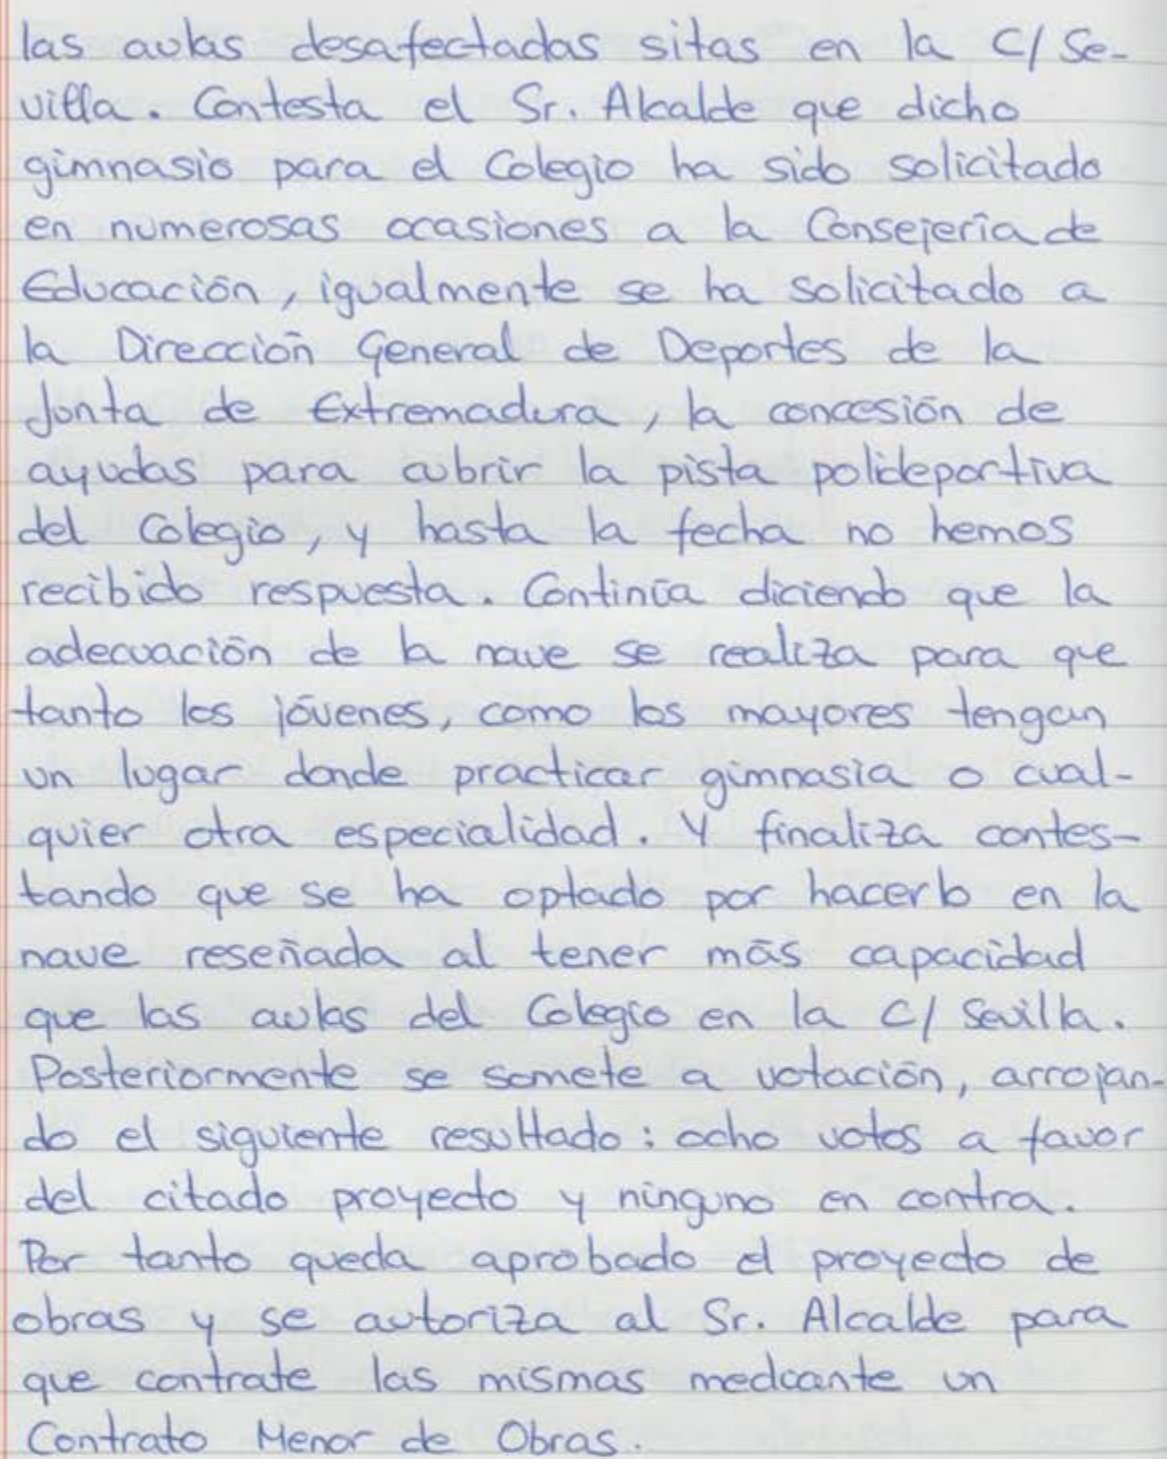 las aulas desafectadas sitas en la C/ Se-
villa. Contesta el Sr. Alcalde que dicho
gimnasio para el Colegio ha sido solicitado
en numerosas ocasiones a la Consejería de
Educación, igualmente se ha solicitado a
la Dirección General de Deportes de la
Junta de Extremadura, la concesión de
ayudas para cubrir la pista polideportiva
del Colegio, y hasta la fecha no hemos
recibido respuesta. Continúa diciendo que la
adecuación de la nave se realiza para que
tanto los jóvenes, como los mayores tengan
un lugar donde practicar gimnasia o cual-
quier otra especialidad. Y finaliza contes-
tando que se ha optado por hacerlo en la
nave reseñada al tener más capacidad
que las aulas del Colegio en la C/ Sevilla.
Posteriormente se somete a votación, arrojan-
do el siguiente resultado: ocho votos a favor
del citado proyecto y ninguno en contra.
Por tanto queda aprobado el proyecto de
obras y se autoriza al Sr. Alcalde para
que contrate las mismas mediante un
Contrato Menor de Obras.